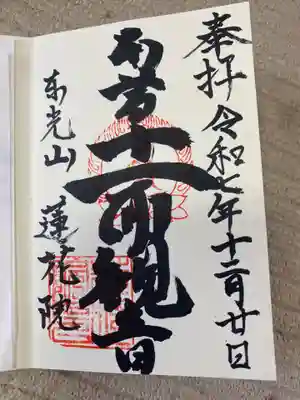 奉拝 令和七年十二月廿日
十一面観音
東光山 蓮花院